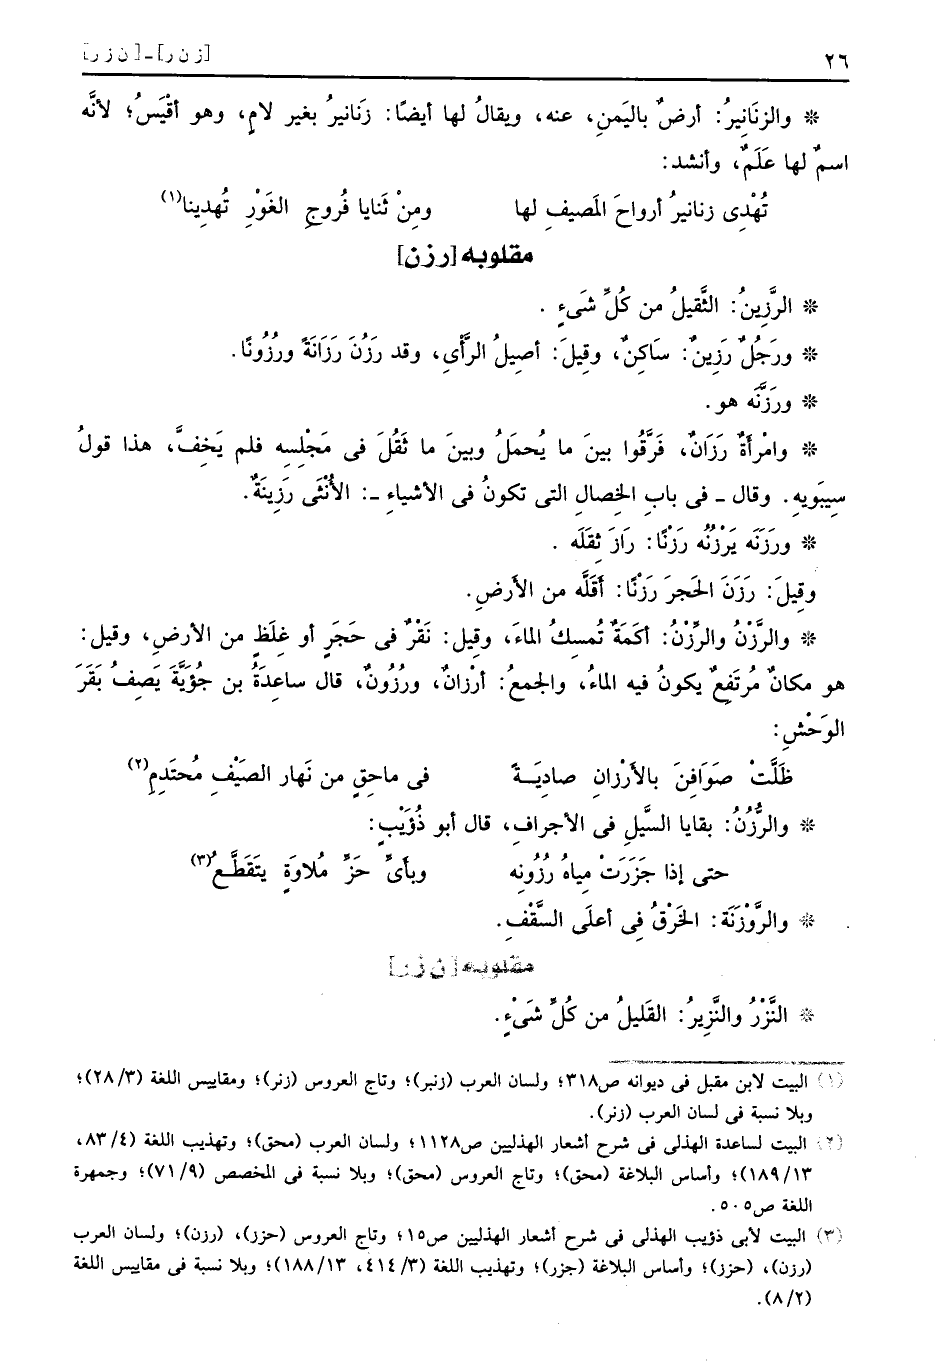 ٢٦ [ز ن ر] ـ [ن ز ر]
* والزنَانِيرُ: أرضٌ باليَمنِ، عنه، ويقالُ لها أيضًا: زنَانيرُ بغير لامٍ، وهو أقْيَسُ؛ لأنَّه
اسمٌ لها عَلَمٌ، وأنشد:
تُهْدِى زنانيرُ أرواحَ المَصيفِ لها ومِنْ ثَنايا فُروجِ الغَوْرِ تُهدِينا(١)
مقلوبه [ر ز ن]
* الرَّزِينُ: الثَّقيلُ من كُلِّ شَىءٍ .
* ورَجُلٌ رَزِينٌ: سَاكِنٌ، وقيلَ: أصيلُ الرَّأىِ، وقد رَزُنَ رَزَانَةً ورُزُونًا.
* ورَزَّنَه هو.
* وامْرأةٌ رَزَانٌ، فَرَّقُوا بينَ ما يُحمَلُ وبينَ ما ثَقُلَ فى مَجْلِسِه فلم يَخِفَّ، هذا قولُ
سِيبَويهِ. وقال ـ فى بابِ الخِصالِ التى تكونُ فى الأشياءِ ـ: الأُنْثَى رَزِينَةٌ.
* ورَزَنَه يَرْزُنُه رَزْنًا: رَازَ ثِقلَه .
وقيلَ: رَزَنَ الحَجرَ رَزْنًا: أَقَلَّه من الأرضِ.
* والرَّزْنُ والرِّزْنُ: أكَمَةٌ تُمسكُ الماءَ، وقيل: نَقْرٌ فى حَجَرٍ أو غلَظٍ من الأرضِ، وقيل:
هو مكانٌ مُرتَفِعٌ يكونُ فيه الماءُ، والجمعُ: أرْزانٌ، ورُزُونٌ، قال ساعدَةُ بن جُؤيَّةَ يَصِفُ بَقَرَ
الوَحْشِ:
ظَلَّتْ صَوَافِنَ بالأرْزانِ صادِيَـةً فى ماحِقٍ من نَهارِ الصَيْفِ مُحتَدِمِ(٢)
* والرُّزُنُ: بقايا السَّيلِ فى الأجرافِ، قال أبو ذُؤَيْبٍ:
حتى إذا جَزَرَتْ مِياهُ رُزُونِه وبأىِّ حَزِّ مُلاوَةٍ يتَقَطَّعُ(٣)
* والرَّوْزَنَة: الخَرْقُ فى أعلَى السَّقْفِ.
مقلوبه [ن ز ر]
* النَّزْرُ والنَّزِيرُ: القَليلُ من كُلِّ شَىْءٍ.
(١) البيت لابن مقبل فى ديوانه ص٣١٨؛ ولسان العرب (زنبر)؛ وتاج العروس (زنر)؛ ومقاييس اللغة (٢٨/٣)؛
وبلا نسبة فى لسان العرب (زنر).
(٢) البيت لساعدة الهذلى فى شرح أشعار الهذليين ص١١٢٨؛ ولسان العرب (محق)؛ وتهذيب اللغة (٨٣/٤،
١٨٩/١٣)؛ وأساس البلاغة (محق)؛ وتاج العروس (محق)؛ وبلا نسبة فى المخصص (٧١/٩)؛ وجمهرة
اللغة ص٥٠٥.
(٣) البيت لأبى ذؤيب الهذلى فى شرح أشعار الهذليين ص١٥؛ وتاج العروس (حزز)، (رزن)؛ ولسان العرب
(رزن)، (حزز)؛ وأساس البلاغة (جزر)؛ وتهذيب اللغة (٤١٤/٣، ١٨٨/١٣)؛ وبلا نسبة فى مقاييس اللغة
(٨/٢).